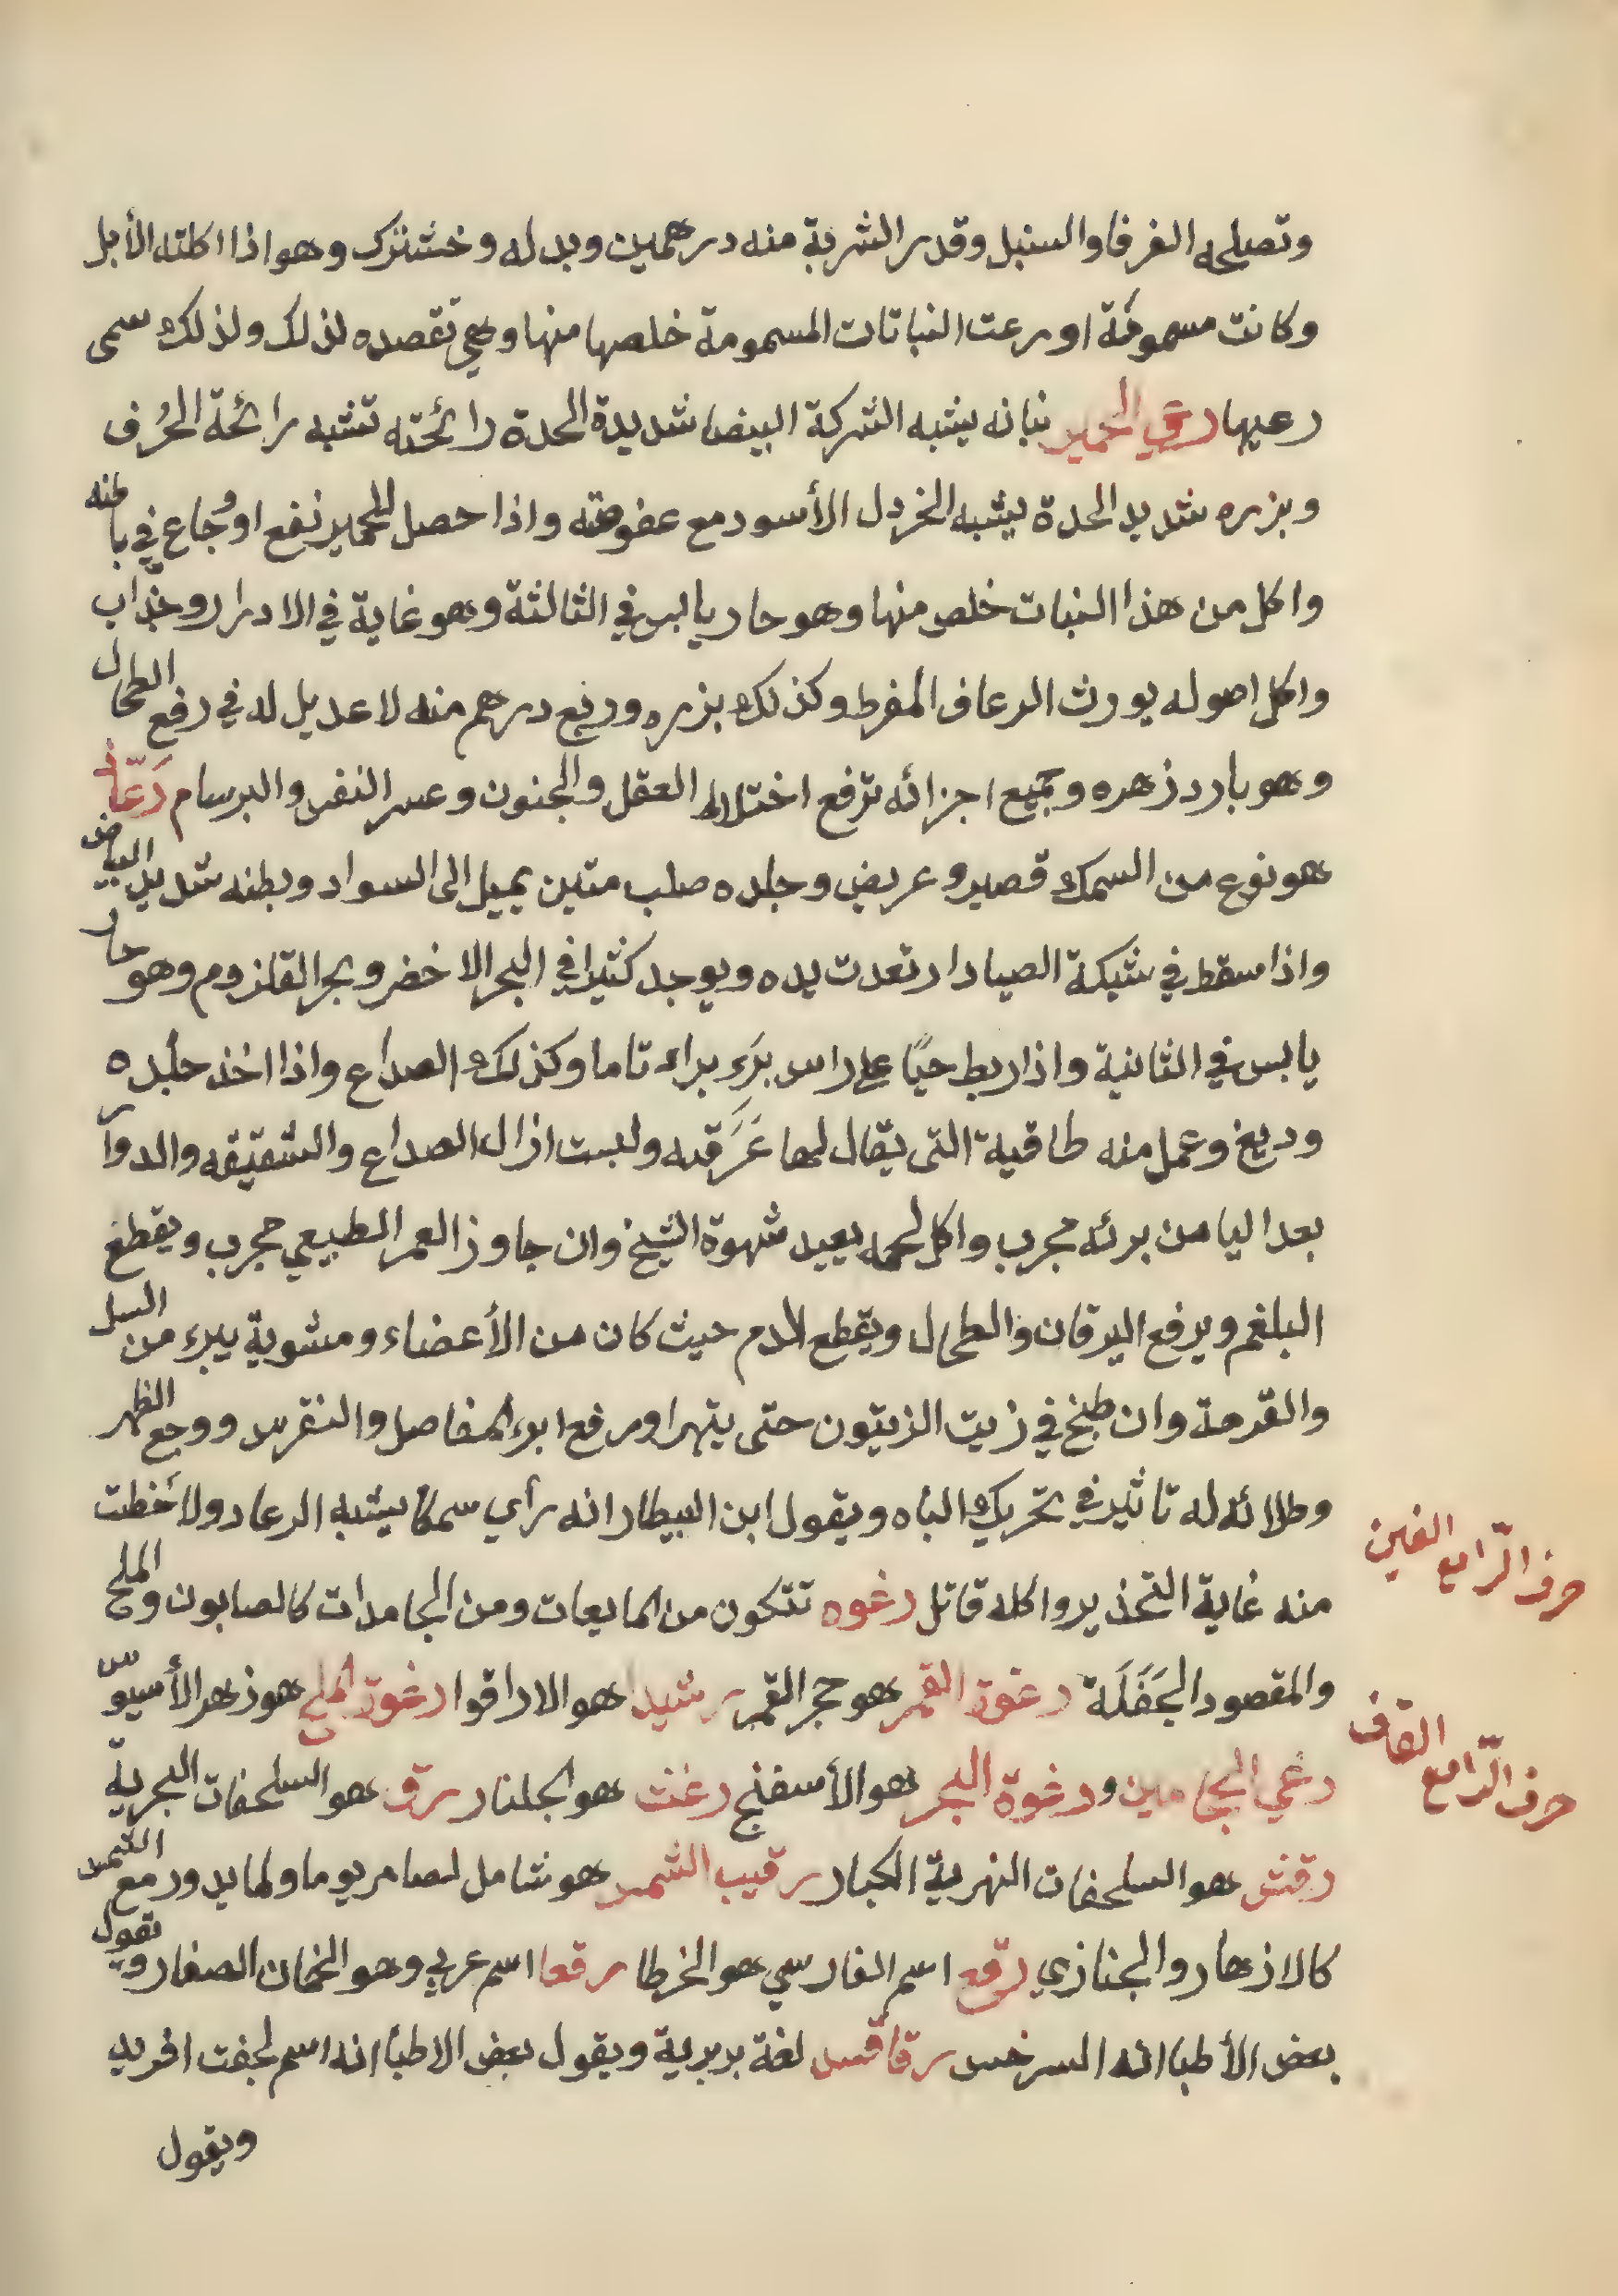 وتصلحه الغرفا والسنبل وقدر الشربة منه درهمين وبدله وخشترك وهو اذا اكلته الأبل
وكانت مسمومَة او رعت النباتات المسمومة خلصها منها وهي تقصده لذلك ولذلك سمى
رعيها رعي الحمير نباته يشبه الشركة البيضا شديدة الحدة رائحته تشبه رائحة الحُرف
وبزره شديد الحدة يشبه الخردل الأسود مع عفوصته واذا حصل للحمير نفع اوجُاع في باطنه
واكل من هذا النبات خلص منها وهو حار يابس في الثالثة وهو غاية في الادرار وجذّاب
واكل اصوله يورث الرعاف المفرط وكذلك بزره وربع درهم منه لا عديل له في رفع الطحال
وهو بارد زهره وجميع اجزائه ترفع اختلال العقل والجنون وعسر النفس والبرسام رَعّاد
هو نوع من السمك قصير وعريض وجلده صلب متين يميل الى السواد وبطنه شديد البياض
واذا سقط في شبكة الصياد ارتعدت يده ويوجد كثيرا في البحر الاخضر وبحر القلزوم وهو حار
يابس في الثانية واذا ربط حيًا على راس برَء براء تاما وكذلك الصداع واذا اخذ جلده
ودبغ وعمل منه طاقية التى يقال لها عَرَقه ولبست ازال الصداع والشقيقه والدوآر
بعد اليا من برئه مجرب واكل لحمه يعيد شهوة الشيخ وان جاوز العمر الطبيعي مجرب ويقطع
البلغم ويرفع اليرقان والطحال ويقطع الدم حيث كان من الأعضاء ومشوية يبرء من السل
والقرحة وان طبخ في زيت الزيتون حتى يتهرا ورفع ابرء المفاصل والنقرس ووجع الظهر
وطلائه له تاثير في تحريك الباه ويقول ابن البيطار انه رأي سمكا يشبه الرعاد ولاخظت
منه غاية التخذير واكله قاتل رغوه تتكون من المايعات ومن الجامدات كالصابون والملح
والمقصود الجَفَلَة رغوة القمر هو حجر القمر رشيدا هو الاراقوا رغوة الملح هو زهر الأسيوّس
رغي الحجامين ورغوة البحر هو الأسفنج رغث هو الجلنار رق هو السلحفات البحريّة
رقش هو السلحفات النهرية الكبار رقيب الشمس هو شامل لصامريوما ولما يدور مع الشمس
كالازهار والجنازي رقع اسم الفارسي هو الخرطا رقعا اسم عربي وهو الخمان الصغار ويقول
بعض الأطبا انه السرخس رقاقس لغة بربرية ويقول بعض الاطبا انه اسم لجفت افريد
ويقول
حرف الرّا مع الغين
حرف الرّا مع القاف